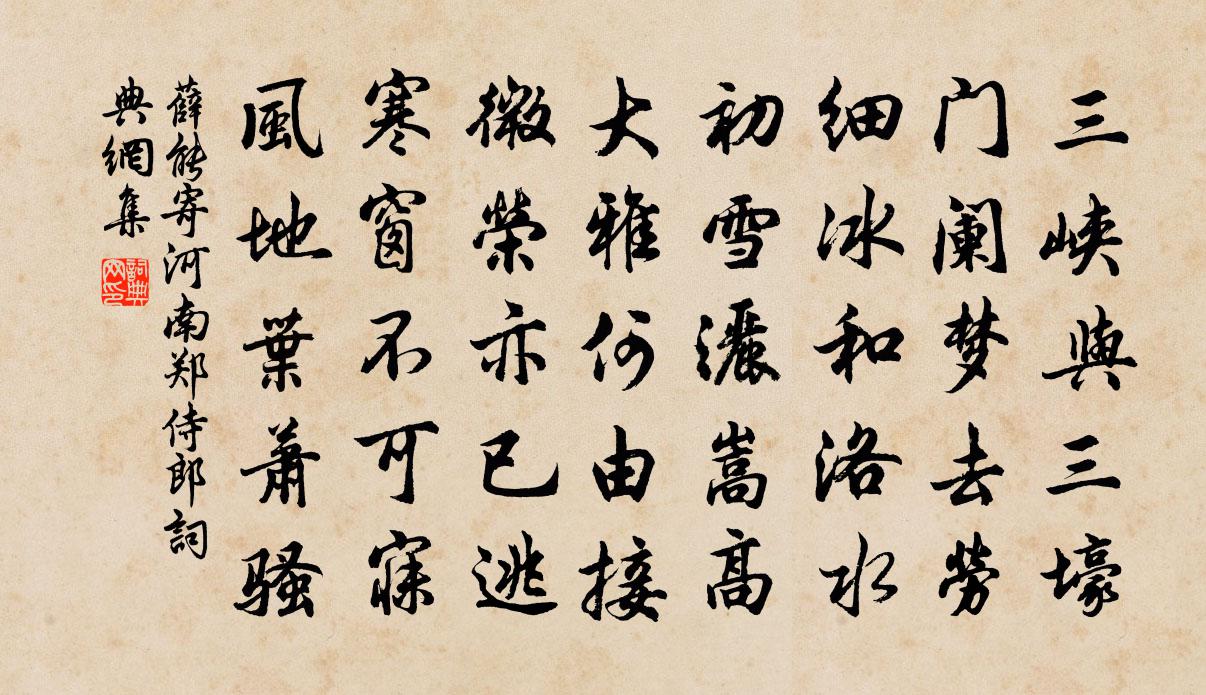 三峡與三壕
门阑梦去勞
细冰和洛水
初雪灑嵩高
大雅何由接
微榮亦已逃
寒窗不可寐
風地葉蕭骚
薛能寄河南郑侍郎詞
典網集
詞典
网印